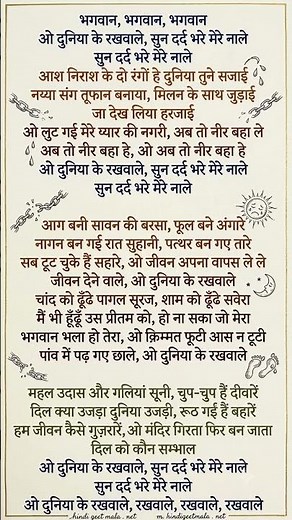 भगवान, भगवान, भगवान
ओ दुनिया के रखवाले, सुन दर्द भरे मेरे नाले
सुन दर्द भरे मेरे नाले
आश निराश के दो रंगों हे दुनिया तुने सजाई
नय्या संग तूफान बनाया, मिलन के साथ जुड़ाई
जा देख लिया हरजाई
ओ लुट गई मेरे प्यार की नगरी, अब तो नीर बहा ले
अब तो नीर बहा हे, ओ अब तो नीर बहा हे
ओ दुनिया के रखवाले, सुन दर्द भरे मेरे नाले
सुन दर्द भरे मेरे नाले
आग बनी सावन की बरसा, फूल बने अंगारे
नागन बन गई रात सुहानी, पत्थर बन गए तारे
सब टूट चुके हैं सहारे, ओ जीवन अपना वापस ले ले
जीवन देने वाले, ओ दुनिया के रखवाले
चांद को ढूँढे पागल सूरज, शाम को ढूँढे सवेरा
मैं भी ढूँढूँ उस प्रीतम को, हो ना सका जो मेरा
भगवान भला हो तेरा, ओ क़िम्मत फूटी आस न टूटी
पांव में पढ़ गए छाले, ओ दुनिया के रखवाले
महल उदास और गलियां सूनी, चुप-चुप हैं दीवारें
दिल क्या उजड़ा दुनिया उजड़ी, रूठ गई हैं बहारें
हम जीवन कैसे गुज़ारें, ओ मंदिर गिरता फिर बन जाता
दिल को कौन सम्भाल
ओ दुनिया के रखवाले, सुन दर्द भरे मेरे नाले
सुन दर्द भरे मेरे नाले
ओ दुनिया के रखवाले, रखवाले, रखवाले, रखवाले
hindi geet mala . net m. hindigeetmala . net